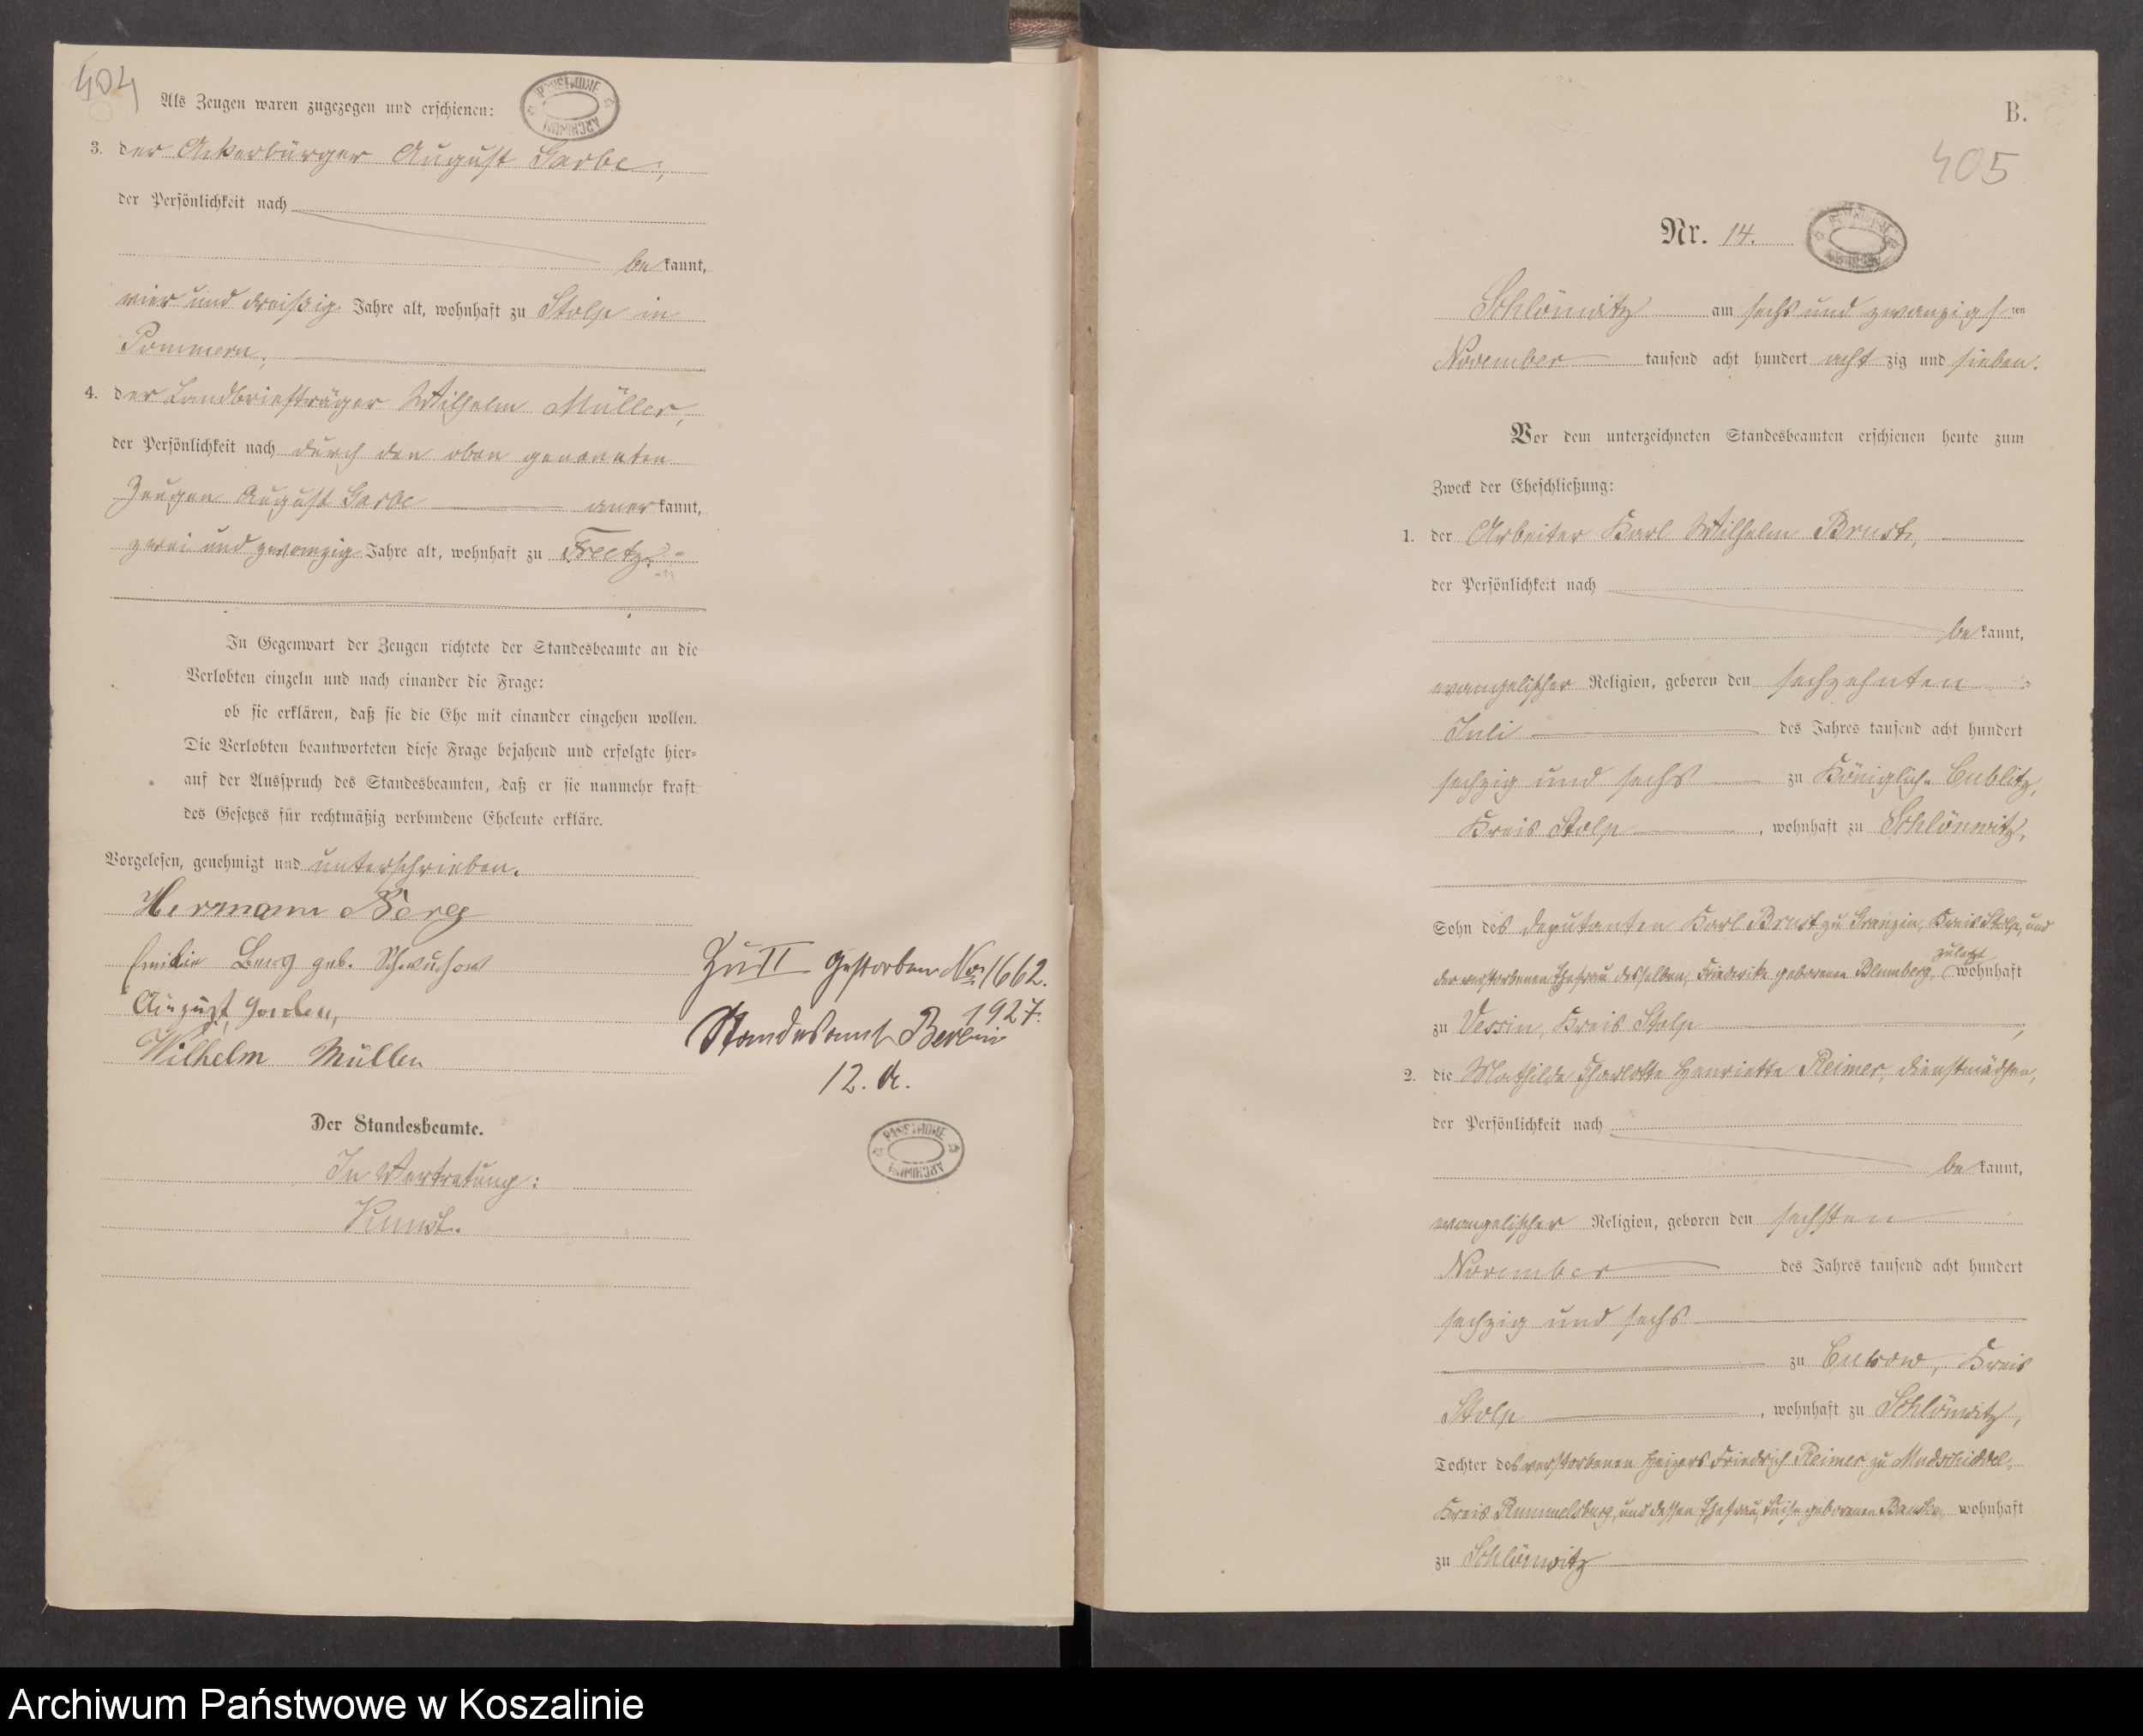 404
Als Zeugen waren zugezogen und erschienen:
PAŃSTWOWE ARCHIWUM
3. der Ackerbürger August Garbe,
der Persönlichkeit nach
be kannt,
vier und dreißig Jahre alt, wohnhaft zu Stolp in
Pommern,
4. der Landbriefträger Wilhelm Müller,
der Persönlichkeit nach durch den oben genannten
Zeugen August Garbe aner kannt,
zwei und zwanzig Jahre alt, wohnhaft zu Freetz.
In Gegenwart der Zeugen richtete der Standesbeamte an die
Verlobten einzeln und nach einander die Frage:
ob sie erklären, daß sie die Ehe mit einander eingehen wollen.
Die Verlobten beantworteten diese Frage bejahend und erfolgte hier=
auf der Ausspruch des Standesbeamten, daß er sie nunmehr kraft
des Gesetzes für rechtmäßig verbundene Eheleute erkläre.
Vorgelesen, genehmigt und unterschrieben.
Hermann Berg
Emilie Berg geb. Schwuchow
August Garbe,
Wilhelm Müller
Zu II gestorben No 1662.
1927.
Standesamt Berlin
12. a.
PAŃSTWOWE ARCHIWUM
Der Standesbeamte.
In Vertretung:
Kunst.
B.
405
Nr. 14.
PAŃSTWOWE ARCHIWUM
Schlönwitz am sechs und zwanzigs ten
November tausend acht hundert acht zig und sieben.
Vor dem unterzeichneten Standesbeamten erschienen heute zum
Zweck der Eheschließung:
1. der Arbeiter Karl Wilhelm Brust,
der Persönlichkeit nach
be kannt,
evangelischer Religion, geboren den sechzehnten
Juli des Jahres tausend acht hundert
sechzig und sechs zu Königlich Cublitz,
Kreis Stolp, wohnhaft zu Schlönwitz,
Sohn des Deputanten Karl Brust zu Granzin, Kreis Stolp, und
der verstorbenen Ehefrau desselben, Friederike geborenen Blumberg, zuletzt wohnhaft
zu Vessin, Kreis Stolp,
2. die Mathilde Charlotte Henriette Reimer, Dienstmädchen,
der Persönlichkeit nach
be kannt,
evangelischer Religion, geboren den sechsten
November des Jahres tausend acht hundert
sechzig und sechs
zu Bukow, Kreis
Stolp, wohnhaft zu Schlönwitz,
Tochter des verstorbenen Friedrich Reimer zu
Kreis Rummelsburg, und dessen Ehefrau, Luise geborenen wohnhaft
zu Schlönwitz
Archiwum Państwowe w Koszalinie